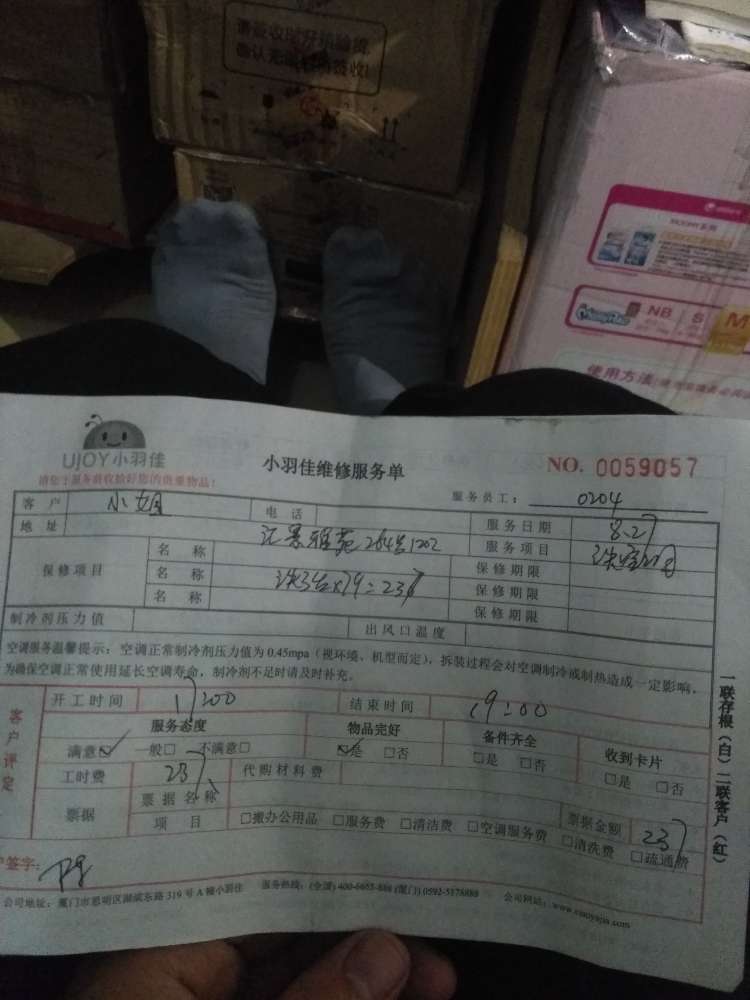 请签收时开箱验货,
确认无误后再签收!
NB S M
使用方法
UJOY小羽佳
小羽佳维修服务单
NO. 0059057
请您于服务前收拾好您的贵重物品!
服务员工: 0204
客户 小姐 电话 服务日期 8.27
地址 264号1202 服务项目
保修项目 名称 保修期限
名称 洗3台×79=237 保修期限
名称 保修期限
制冷剂压力值 出风口温度
空调服务温馨提示:空调正常制冷剂压力值为0.45mpa(视环境、机型而定),拆装过程会对空调制冷或制热造成一定影响,
为确保空调正常使用延长空调寿命,制冷剂不足时请及时补充。
客户评定
开工时间 17:00 结束时间 19:00
服务态度 物品完好 备件齐全 收到卡片
满意☑ 一般□ 不满意□ ☑是 □否 □是 □否 □是 □否
工时费 237 代购材料费
票据 票据名称 票据金额 237
项目 □搬办公用品 □服务费 □清洁费 □空调服务费 □清洗费 □疏通费
户签字:
公司地址:厦门市思明区湖滨东路319号A幢小羽佳 服务热线:(全国)400-6665-886 (厦门)0592-5178888 公司网站:www.xiaoyujia.com
一联存根(白)二联客户(红)